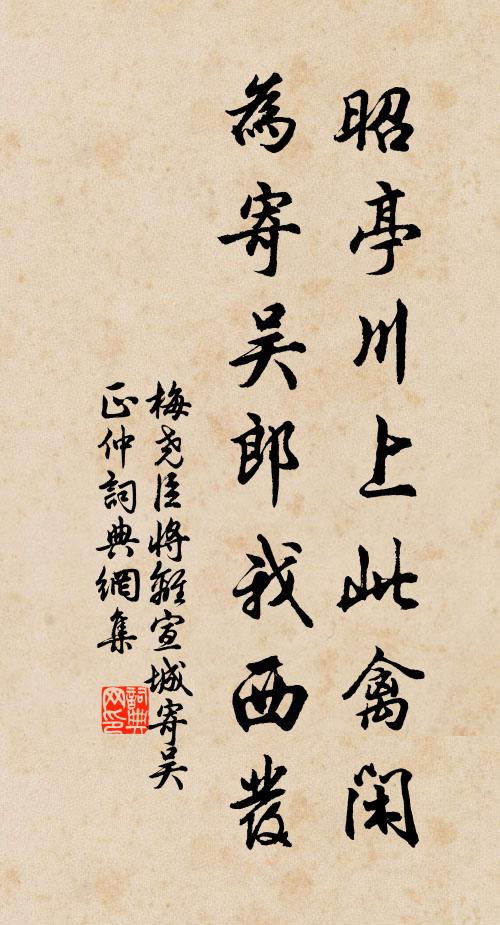 昭亭川上此禽閑
為寄吴郎我西發
梅尧臣將離宣城寄吴
正仲詞典網集
詞典網印